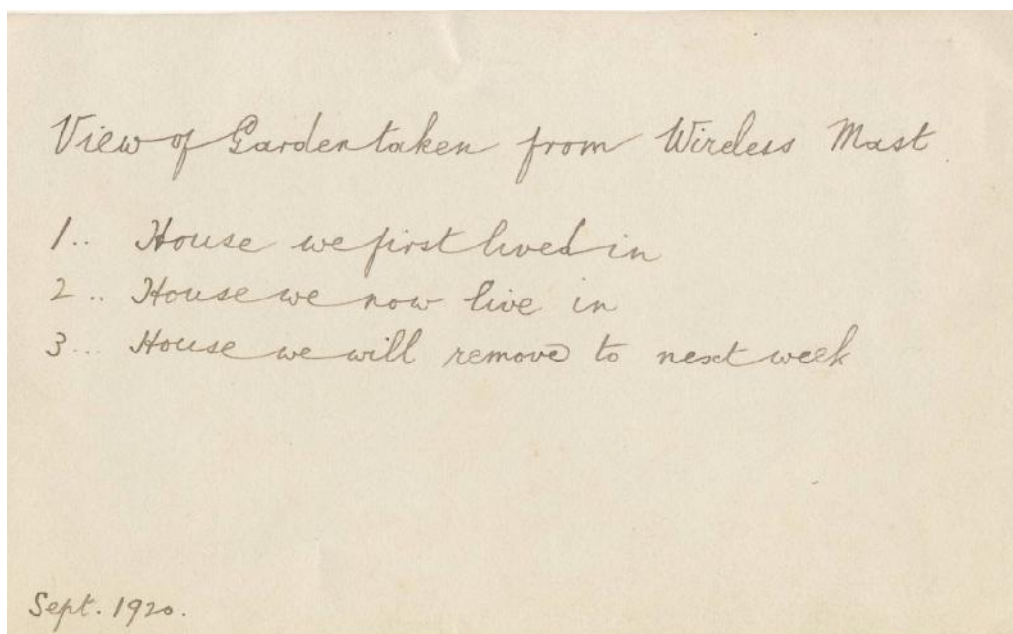 View of Garden taken from Wireless Mast
1.. House we first lived in
2.. House we now live in
3... House we will remove to next week
Sept. 1920.